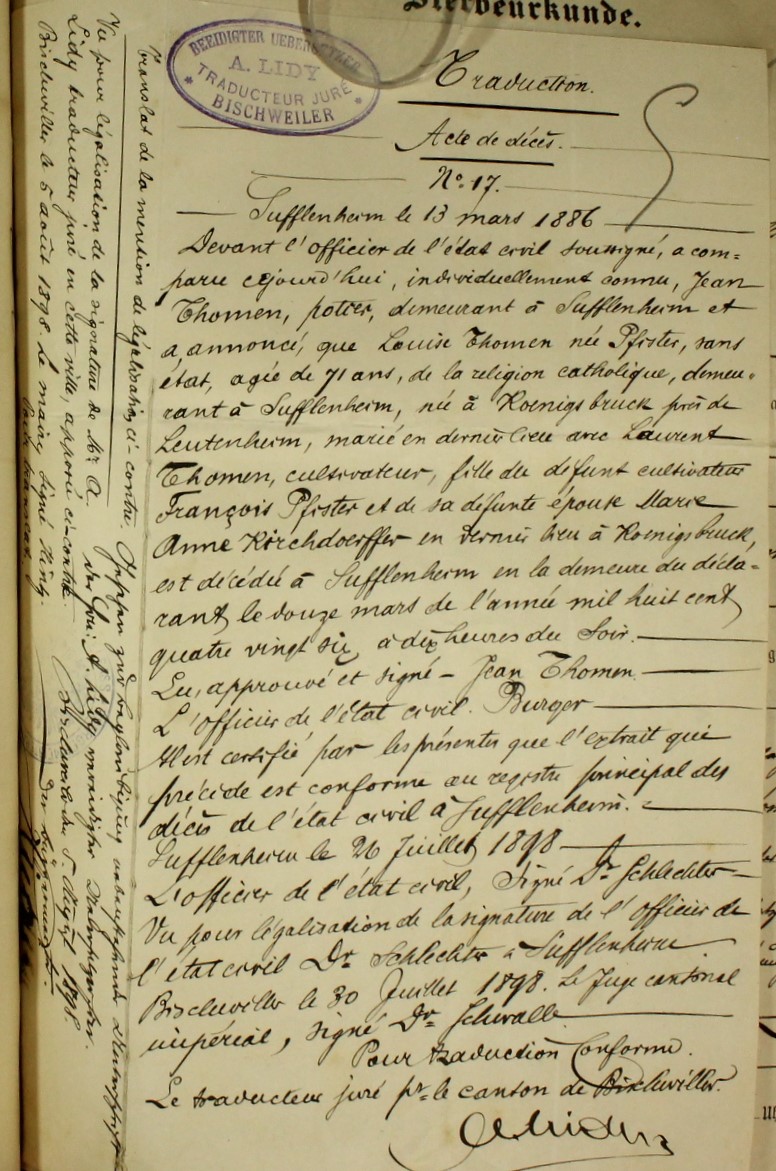 Sterbeurkunde.
BEEIDIGTER UEBERSETZER
A. LIDY
TRADUCTEUR JURÉ
BISCHWEILER
Traduction.
Acte de décès.
No. 17.
Sufflenheim le 13 mars 1886
Devant l'officier de l'état civil soussigné, a com-
paru cejourd'hui, individuellement connu, Jean
Thomen, potier, demeurant à Sufflenheim et
a annoncé, que Louise Thomen née Pfister, sans
état, agée de 71 ans, de la religion catholique, demeu-
rant à Sufflenheim, née à Koenigsbruck près de
Leutenheim, marié en dernier lieu avec Laurent
Thomen, cultivateur, fille du défunt cultivateur
François Pfister et de sa défunte épouse Marie
Anne Kirchdoerffer en dernier lieu à Koenigsbruck,
est décédée à Sufflenheim en la demeure du décla-
rant, le douze mars de l'année mil huit cent
quatre vingt six, à dix heures du Soir.
Lu, approuvé et signé - Jean Thomen.
L'officier de l'état civil. Burger
Il est certifié par les présentes que l'extrait qui
précède est conforme au registre principal des
décès de l'état civil à Sufflenheim.
Sufflenheim le 26 Juillet 1898
L'officier de l'état civil, Signé Dr Schlechter
Vu pour légalisation de la signature de l'officier de
l'état civil Dr Schlechter à Sufflenheim
Bischwiller le 30 Juillet 1898. Le Juge cantonal
impérial, signé Dr Schwalle
Pour traduction conforme.
Le traducteur juré pr le canton de Bischwiller.
translat de la mention de légalisation ci-contre.
Vu pour légalisation de la signature de Mr A.
Lidy traducteur juré en cette ville, apposé ci-contre.
Bischwiller le 5 août 1898. Le maire, signé
Pour translat.
Gesehen zur Beglaubigung nebenstehender Unterschrift
des Hrn. A. Lidy vereidigter
Bischweiler den 5. August 1898.
Der Bürgermeister